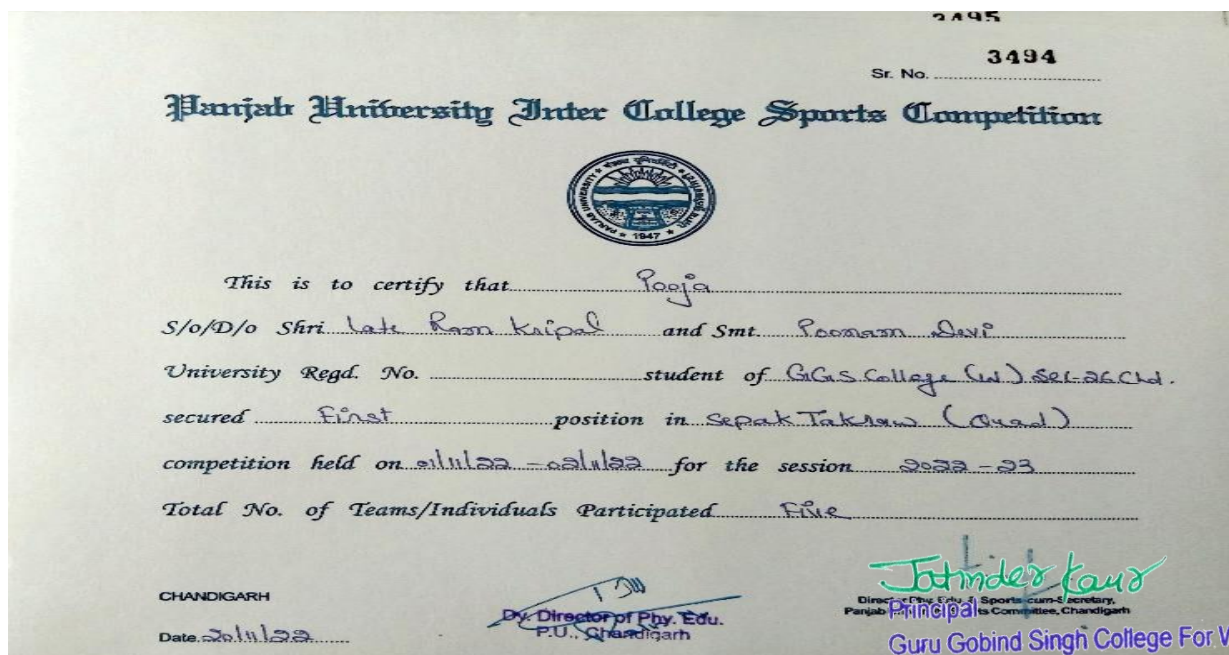 3495
3494
Sr. No.
Panjab University Inter College Sports Competition
PANJAB UNIVERSITY
1947
This is to certify that Pooja
S/o/D/o Shri Late Ram Kripal and Smt. Poonam Devi
University Regd. No. student of GGS College (W) Sec-26 Chd.
secured First position in Sepak Takraw (Quad)
competition held on 01/11/22 - 02/11/22 for the session 2022-23
Total No. of Teams/Individuals Participated Five
Jatinder Kaur
CHANDIGARH
Dy. Director of Phy. Edu.
P.U., Chandigarh
Director Phy. Edu. & Sports-cum-Secretary,
Panjab Sports Committee, Chandigarh
Principal
Guru Gobind Singh College For W
Date 20/11/22